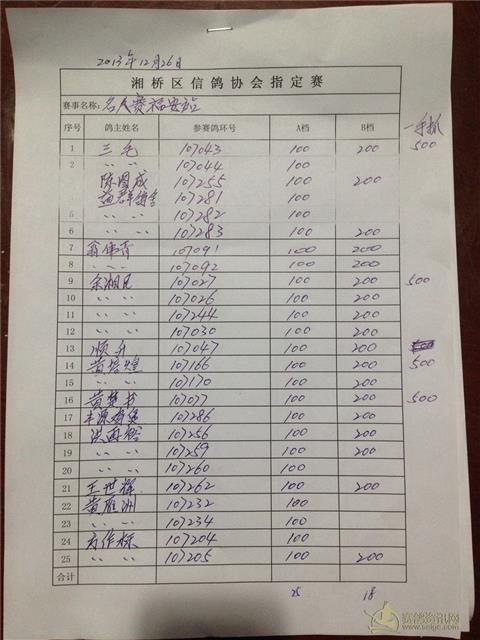 2013年12月26日
湘桥区信鸽协会指定赛
赛事名称: 名人赛福安站
序号 鸽主姓名 参赛鸽环号 A档 B档 一手抓
1 三毛 107043 100 200 500
2 〃 〃 107044 100
陈国成 107255 100 200
107281 100
5 〃 〃 107282 100
6 〃 〃 107283 100 200
7 翁伟青 107091 100 200
8 〃 〃 107092 100 200
9 余湘凡 107027 100 200 500
10 〃 〃 107026 100 200
11 〃 〃 107244 100 200
12 〃 〃 107030 100 200
13 顺升 107047 100 200
14 黄培煌 107166 100 200 500
15 〃 〃 107170 100 200
16 黄 107077 100 200 500
17 丰源 107286 100 200
18 洪 107256 100 200
19 〃 〃 107259 100 200
20 〃 〃 107260 100
21 王世辉 107262 100 200
22 黄雁洲 107232 100
23 〃 〃 107234 100
24 方作标 107204 100
25 〃 〃 107205 100 200
合计
25 18
赛鸽资讯网
www.saige.com